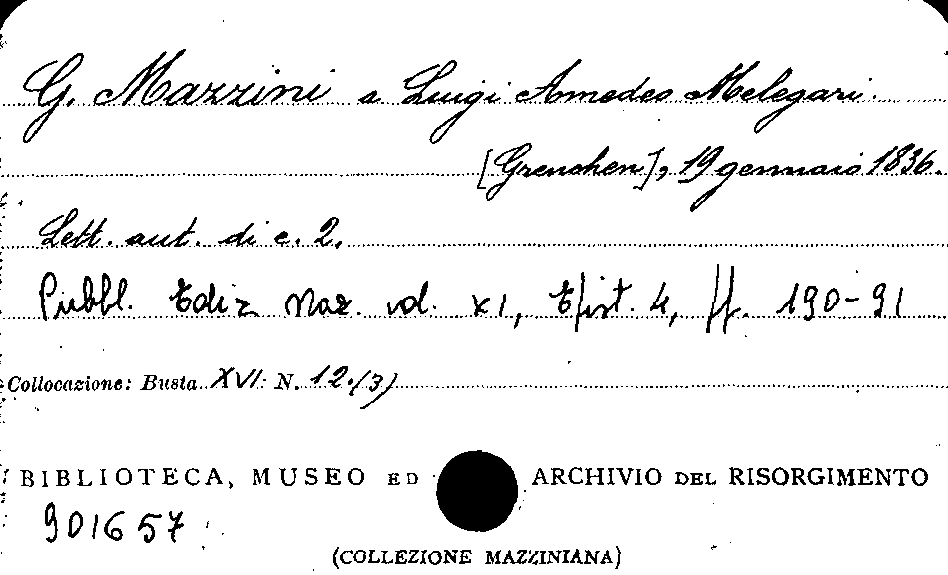 G. Mazzini a Luigi Amedeo Melegari.
[Grenchen], 19 gennaio 1836.
Lett. aut. di c. 2.
Pubbl. Ediz Naz. vol. XI, Epist. 4, pp. 190-91
Collocazione: Busta XVI N. 12.(3)
BIBLIOTECA, MUSEO ED ARCHIVIO DEL RISORGIMENTO
901657
(COLLEZIONE MAZZINIANA)